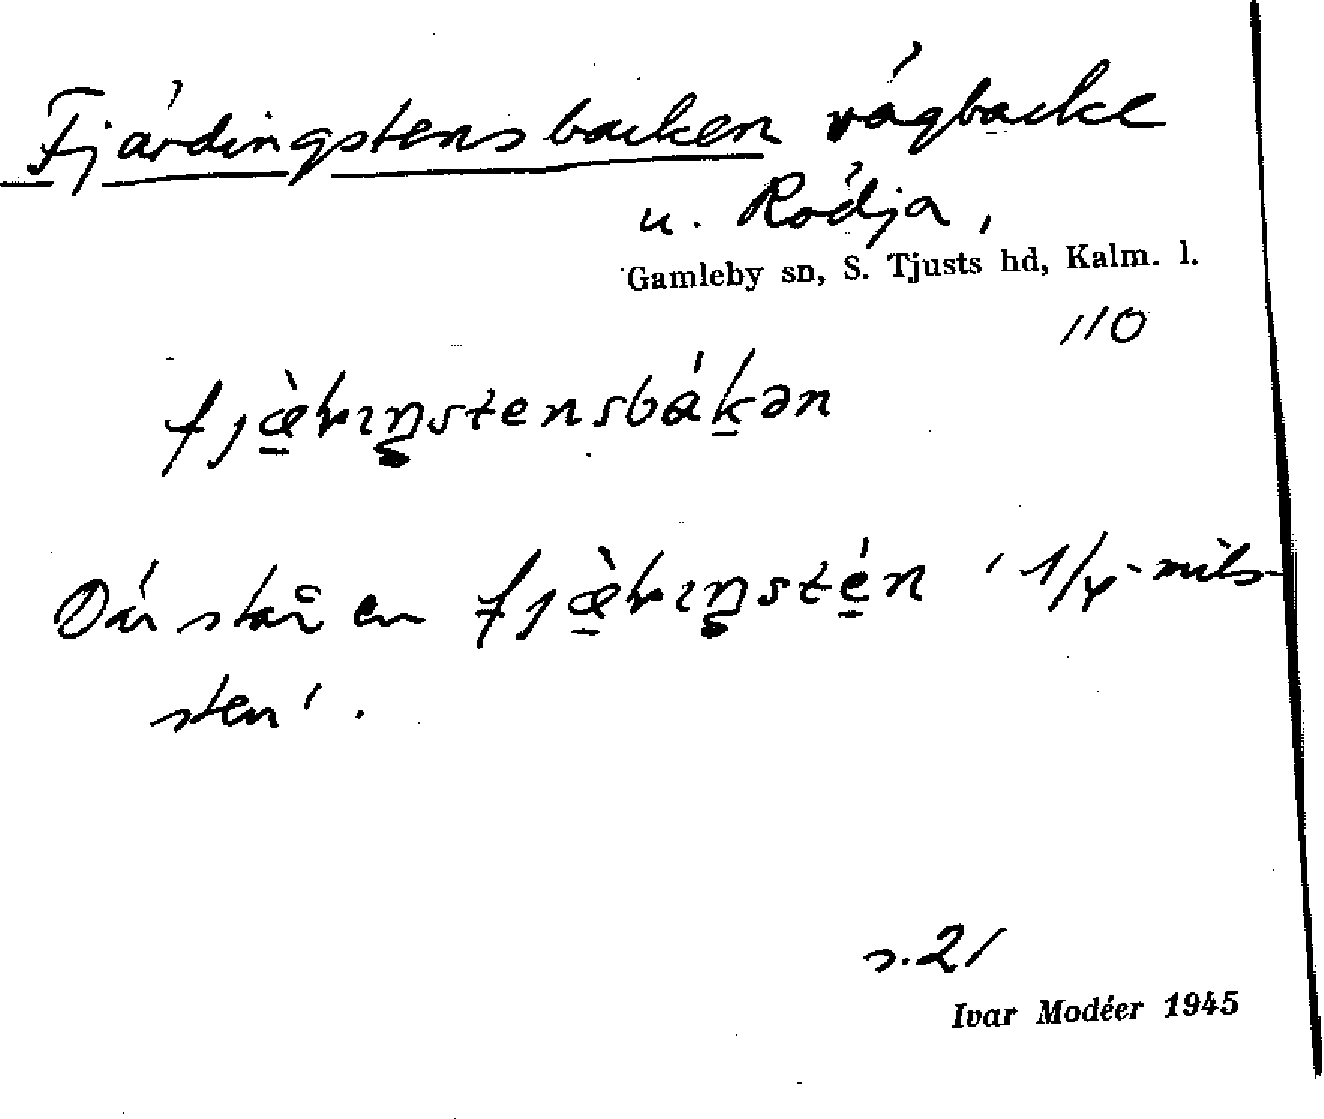 Fjärdingstensbacken vägbacke
u. Rödja,
Gamleby sn, S. Tjusts hd, Kalm. l.
110
Där står en ' 1/4-mils-
sten'.
s. 21
Ivar Modéer 1945